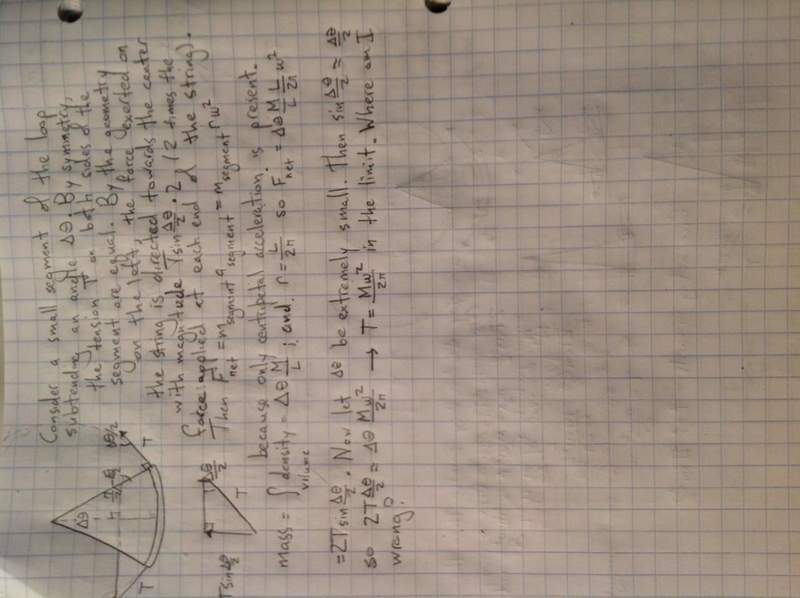 Consider a small segment of the loop
subtending an angle Δθ. By symmetry,
the tension T on both sides of the
segment are equal. By the geometry
on the left, the force exerted on
the string is directed towards the center
with magnitude T sin Δθ/2 · 2 (2 times the
force applied at each end of the string).
Then F_net = m_segment a_segment = m_segment r w²
because only centripetal acceleration is present.
mass = ∫_volume density = Δθ M/L ; and r = L/2π so F_net = Δθ M/L L/2π w²
= 2T sin Δθ/2 . Now let Δθ be extremely small. Then sin Δθ/2 = Δθ/2
so 2T Δθ/2 = Δθ Mw²/2π → T = Mw²/2π in the limit. Where am I
wrong?
Δθ
Δθ/2
T
T
T sin Δθ/2
Δθ/2
T